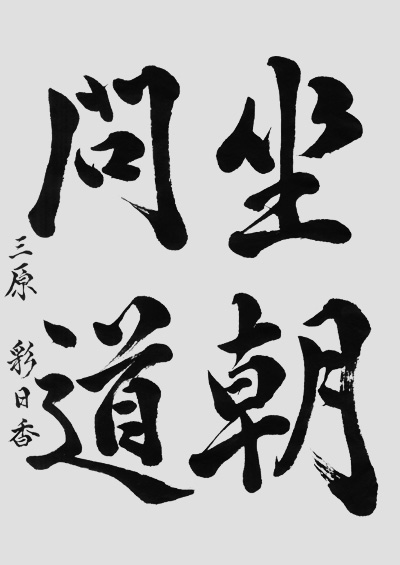 坐朝
問道
三原 彩日香